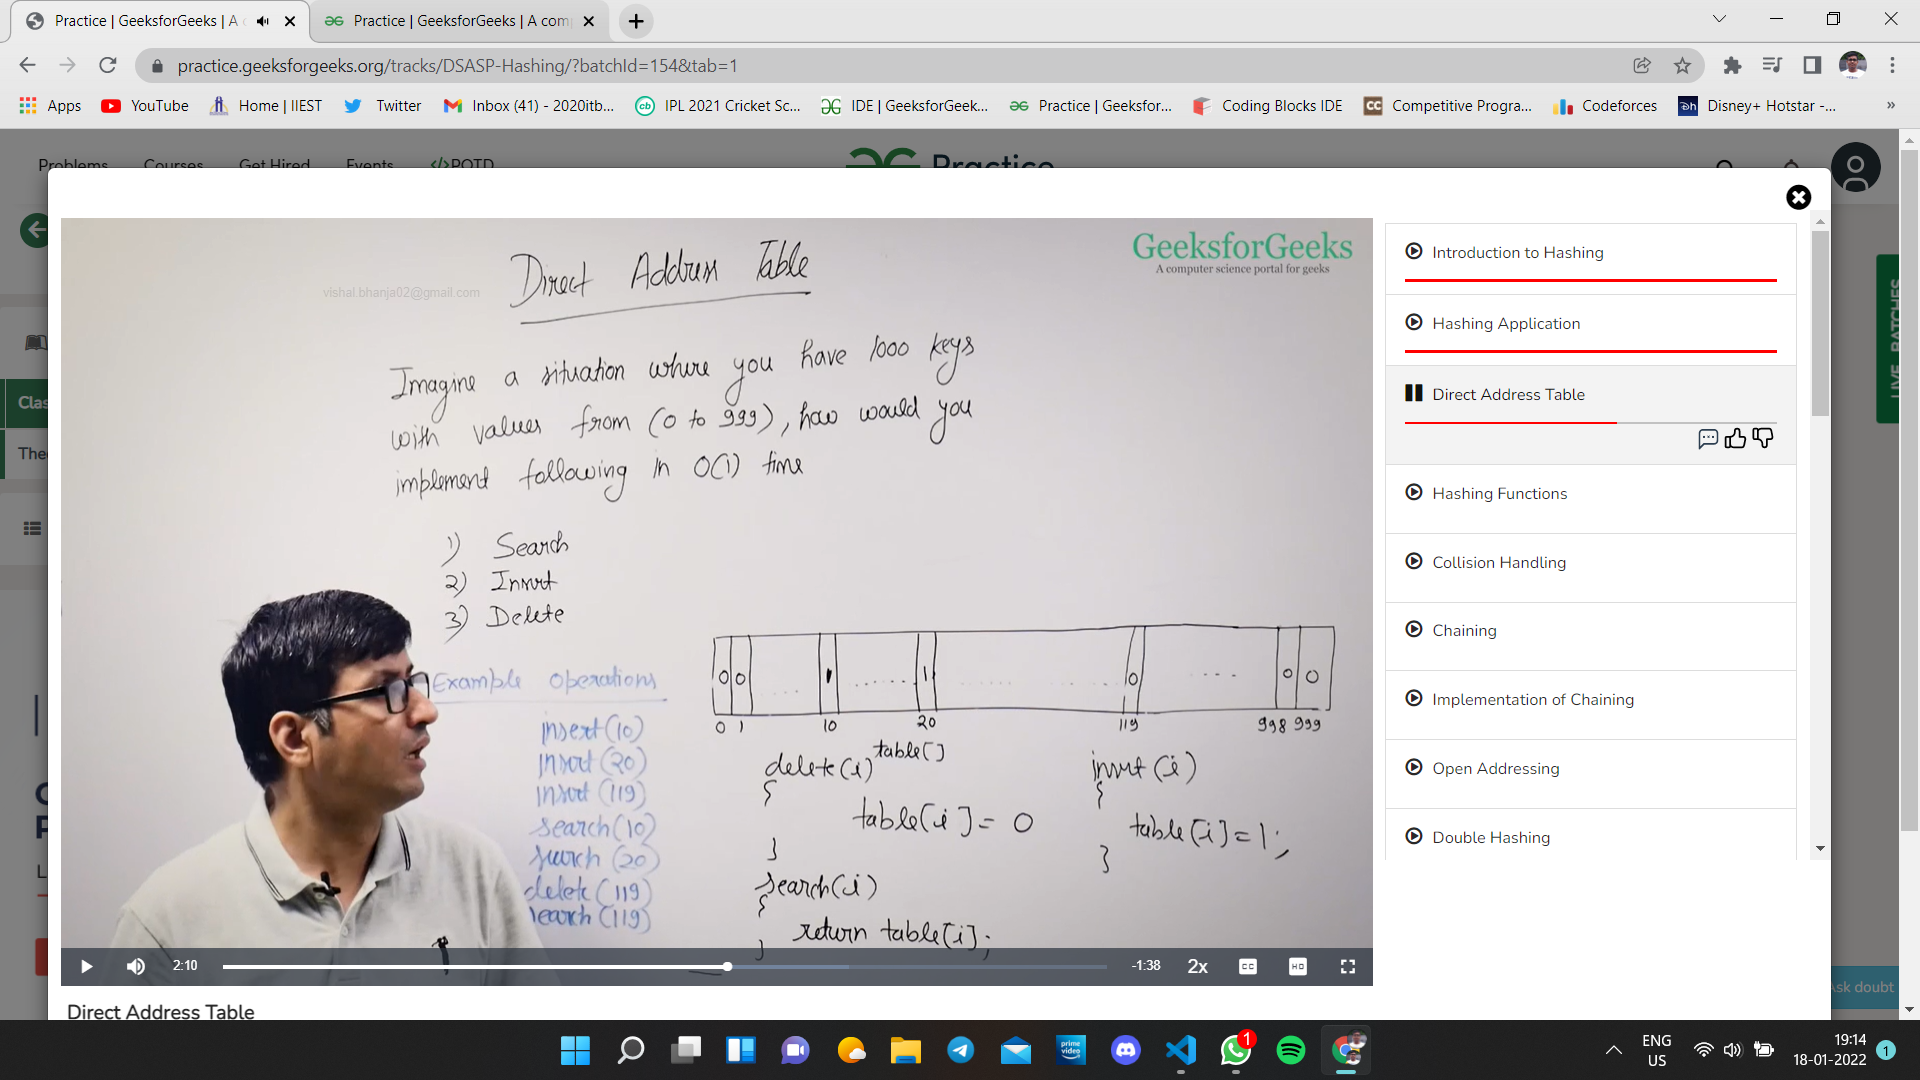 Practice | GeeksforGeeks | A c
Practice | GeeksforGeeks | A com
practice.geeksforgeeks.org/tracks/DSASP-Hashing/?batchId=154&tab=1
Apps YouTube Home | IIEST Twitter Inbox (41) - 2020itb... IPL 2021 Cricket Sc... IDE | GeeksforGeek... Practice | Geeksfor... Coding Blocks IDE Competitive Progra... Codeforces Disney+ Hotstar -... »
Problems Courses Get Hired Events POTD Practice
LIVE BATCHES
Clas
The
Direct Address Table
GeeksforGeeks
A computer science portal for geeks
vishal.bhanja02@gmail.com
Imagine a situation where you have 1000 keys
with values from (0 to 999), how would you
implement following in O(1) time
1) Search
2) Insert
3) Delete
Example Operations
insert(10)
insert(20)
insert(119)
search(10)
search(20)
delete(119)
search(119)
0 0 1 1 0 0 0
0 1 10 20 119 998 999
table[]
delete(i)
{
table[i] = 0
}
insert(i)
{
table[i]=1;
}
search(i)
{
return table[i];
}
2:10 -1:38 2x CC HD
Direct Address Table
Introduction to Hashing
Hashing Application
Direct Address Table
Hashing Functions
Collision Handling
Chaining
Implementation of Chaining
Open Addressing
Double Hashing
Ask doubt
prime video
1
ENG
US
19:14
18-01-2022
1